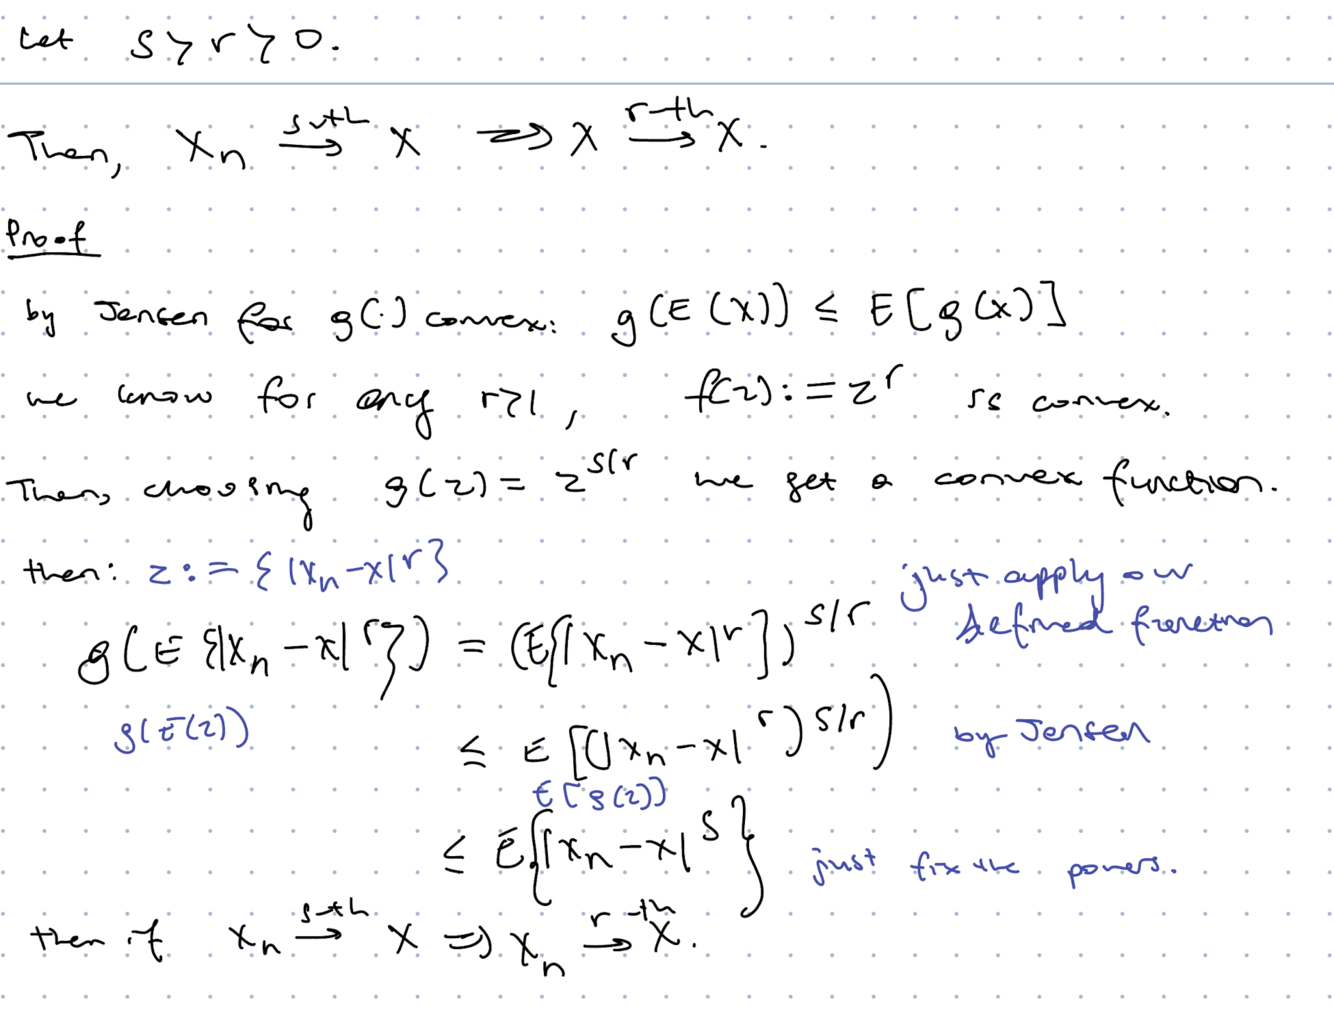 Let s > r > 0.
Then, Xn s-th→ X ⇒ X r-th→ X.
Proof
by Jensen for g(·) convex: g(E(X)) ≤ E[g(x)]
we know for any r>1, f(z) := z^r is convex.
Then, choosing g(z) = z^{s/r} we get a convex function.
then: z := {|Xn-X|^r}
just apply our defined function
g(E{|Xn-X|^r}) = (E{|Xn-X|^r})^{s/r}
g(E(z))
≤ E[(|Xn-X|^r)^{s/r}) by Jensen
E[g(z)]
≤ E{|Xn-X|^s} just fix the powers.
then if Xn s-th→ X ⇒ Xn r-th→ X.